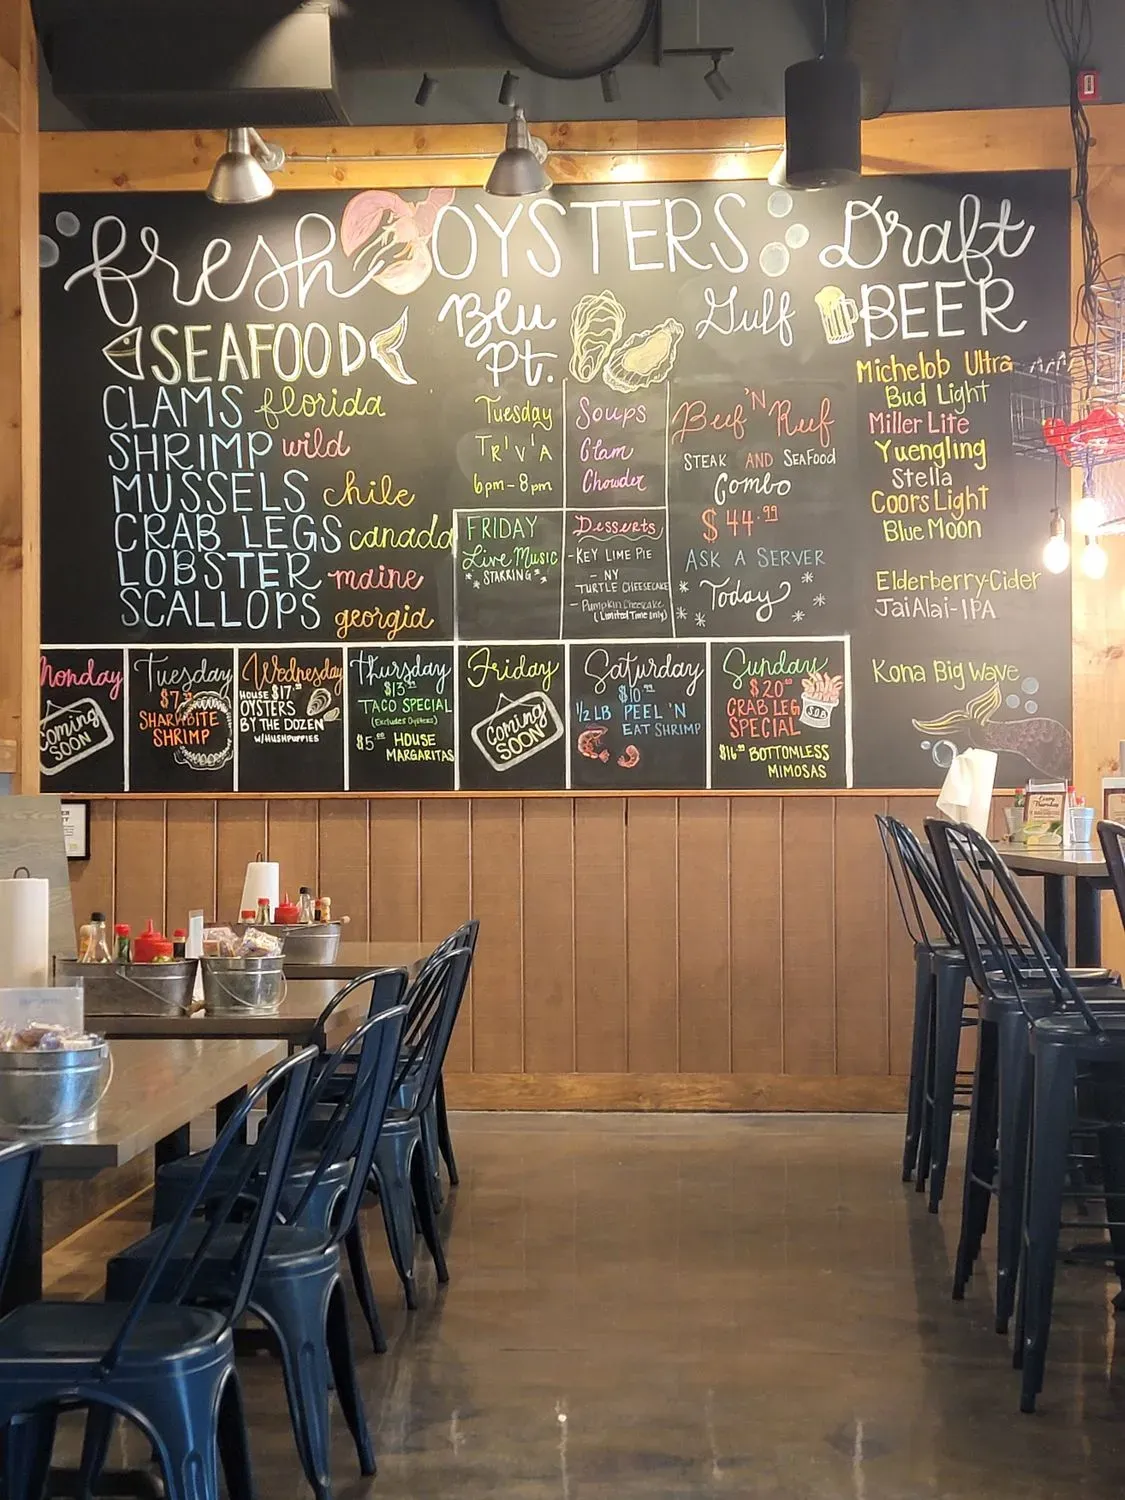 fresh
SEAFOOD
CLAMS florida
SHRIMP wild
MUSSELS chile
CRAB LEGS canada
LOBSTER maine
SCALLOPS georgia
OYSTERS
Blu
Pt.
Gulf
Tuesday
TRIVIA
6pm-8pm
Soups
Clam
Chowder
FRIDAY
Live Music
*STARRING*
Desserts
-KEY LIME PIE
- NY
TURTLE CHEESECAKE
- Pumpkin Cheesecake
(Limited Time Only)
Beef 'N Reef
STEAK AND SEAFOOD
Combo
$44.99
ASK A SERVER
Today
Draft
BEER
Michelob Ultra
Bud Light
Miller Lite
Yuengling
Stella
Coors Light
Blue Moon
Elderberry-Cider
JaiAlai-IPA
Kona Big Wave
Monday
Coming
SOON
Tuesday
SHARKBITE
SHRIMP
Wednesday
HOUSE $17.
OYSTERS
BY THE DOZEN
W/HUSHPUPPIES
Thursday
$13
TACO SPECAL
(Excludes Oysters)
$5 HOUSE
MARGARITAS
Friday
Coming
SOON
Saturday
$10
1/2 LB PEEL 'N
EAT SHRIMP
Sunday
$20
CRAB LEG
SPECIAL
$16 BOTTOMLESS
MIMOSAS